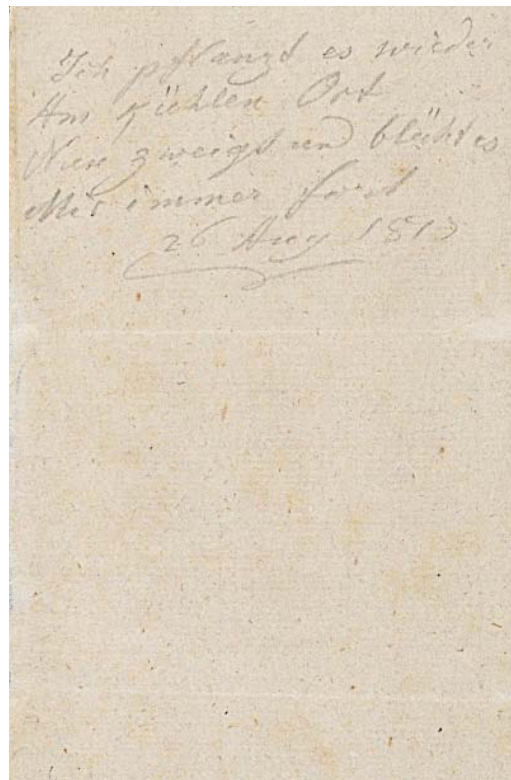 Ich pflanzt es wieder
Am kühlen Ort
Nun zweigt und blüht es
Mir immer fort
26 Aug 1813